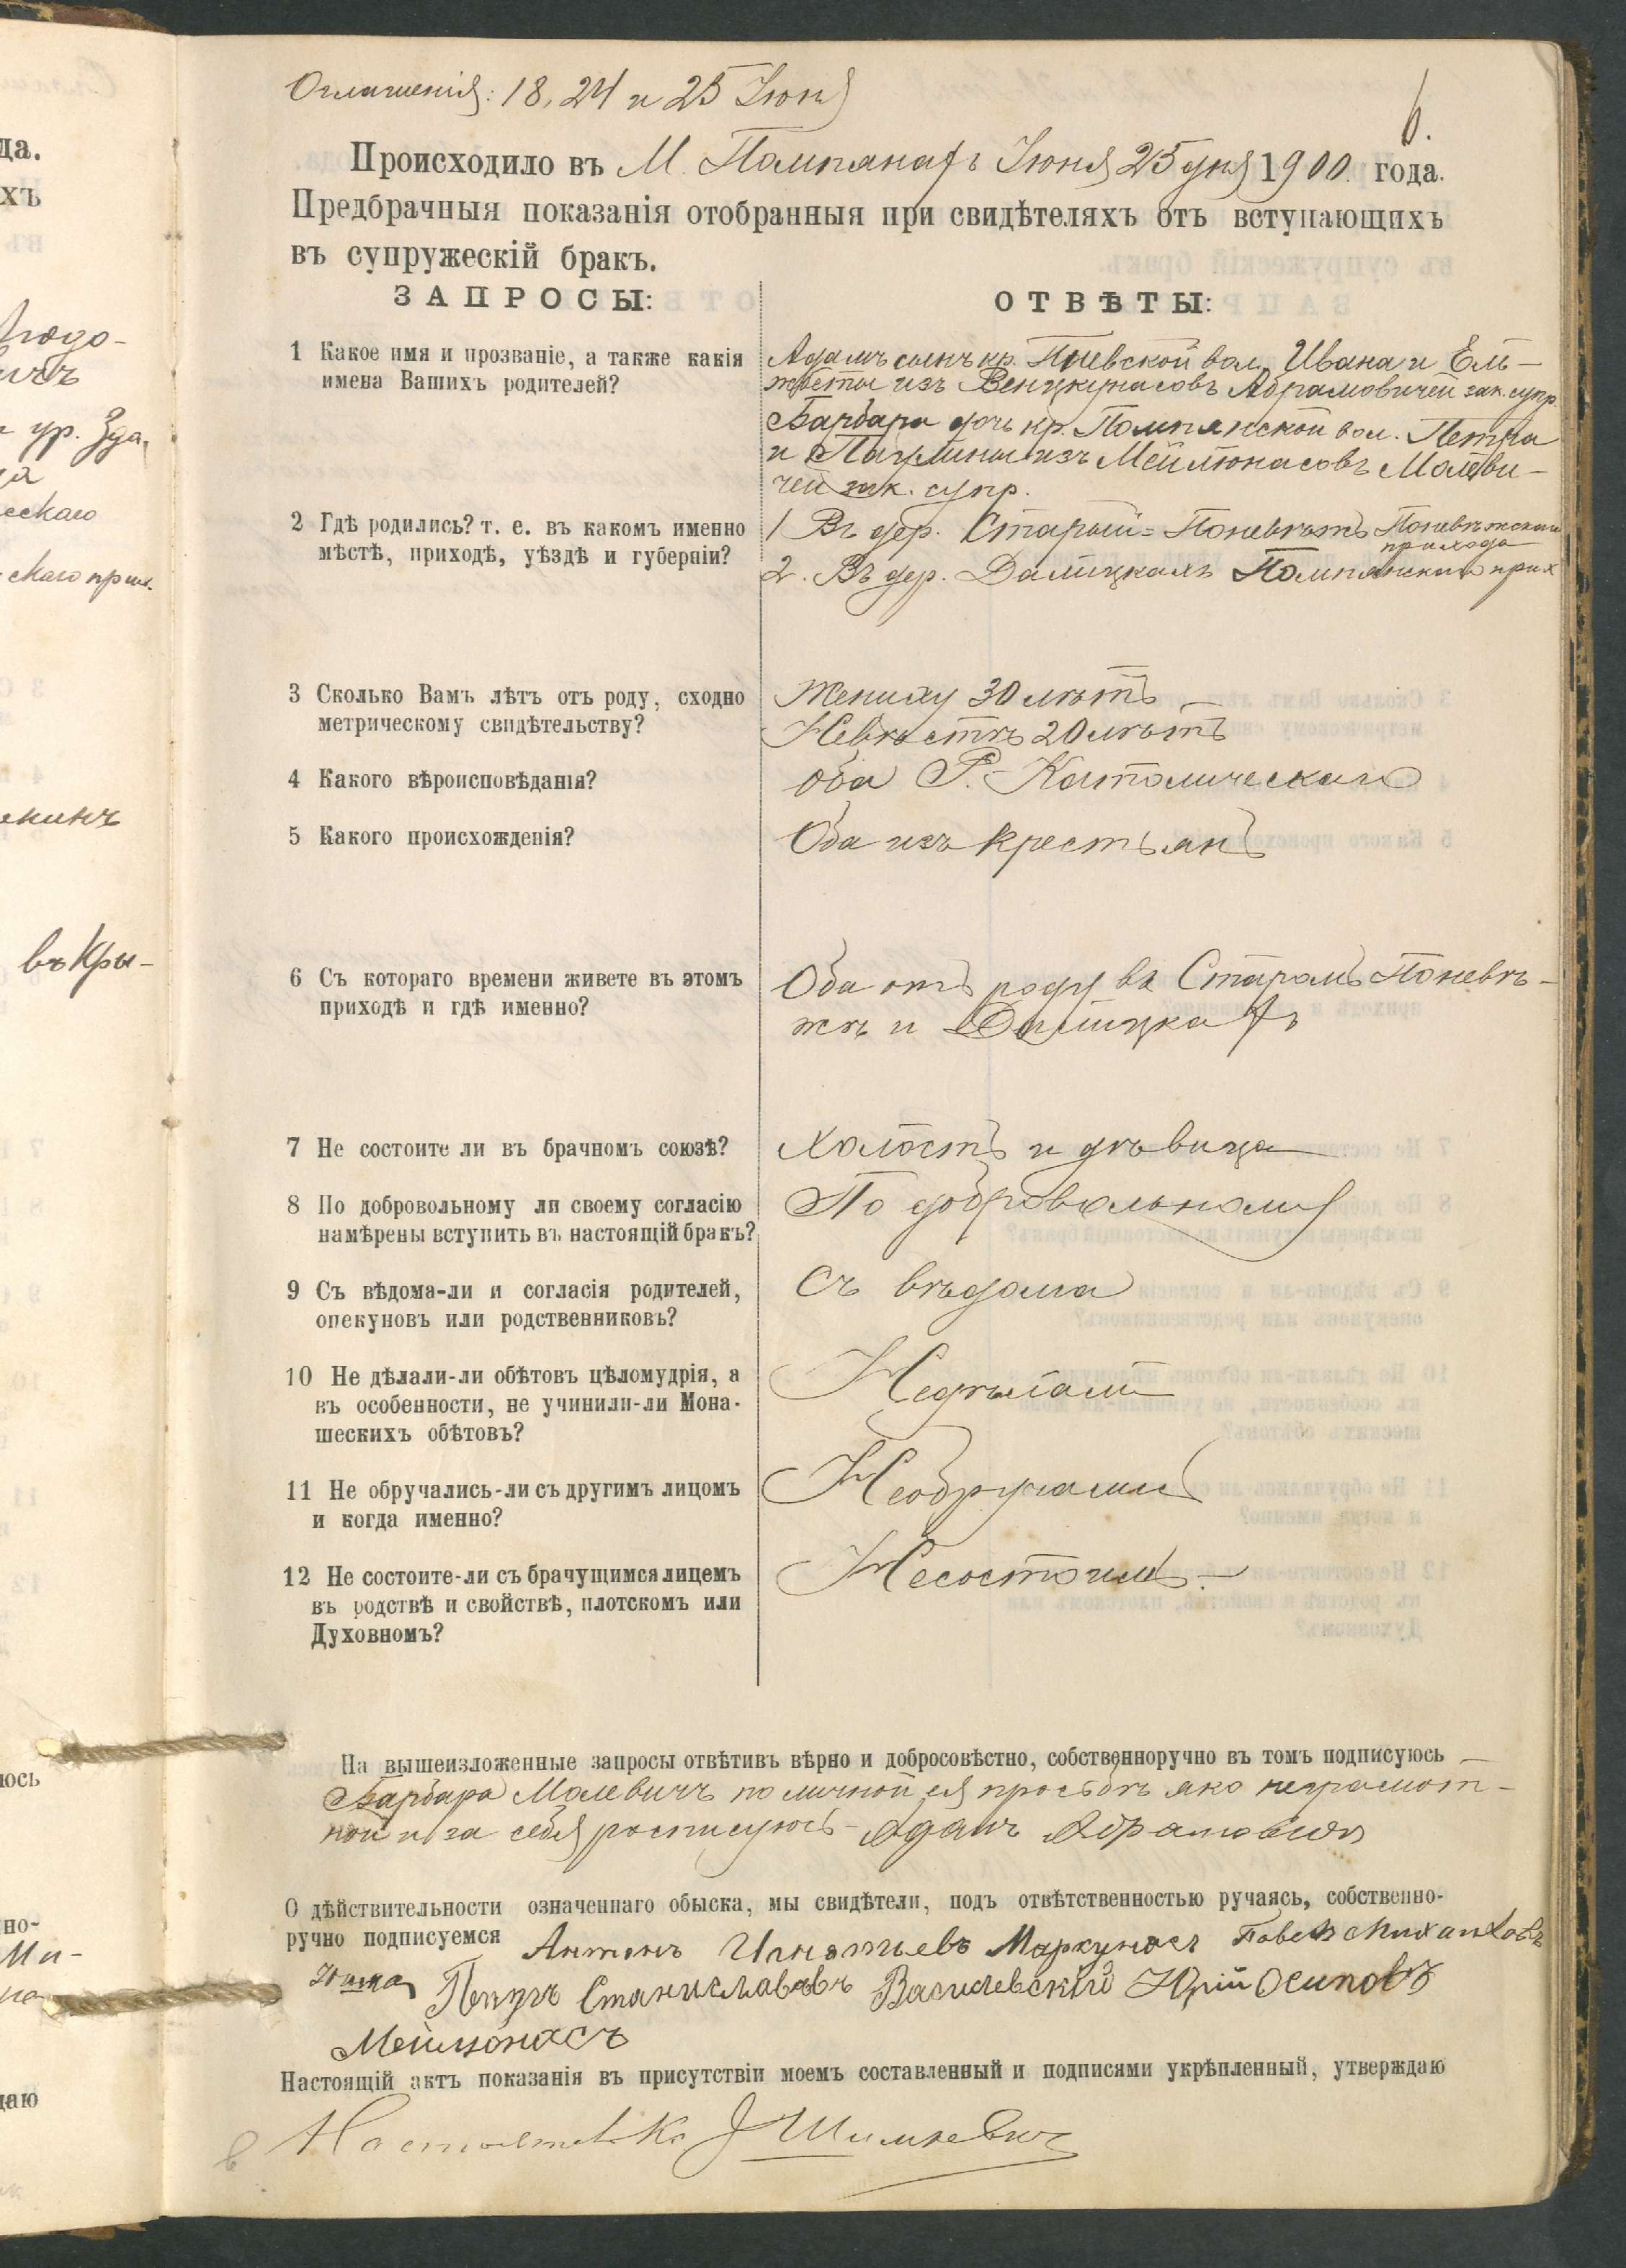 Оглашенія: 18, 24 и 25 Іюня
6.
Происходило въ М. Помпянахъ Іюня 25 дня 1900 года.
Предбрачныя показанія отобранныя при свидѣтеляхъ отъ вступающихъ
въ супружескій бракъ.
ЗАПРОСЫ:
ОТВѢТЫ:
1 Какое имя и прозваніе, а также какія
имена Вашихъ родителей?
Адамъ сынъ кр. Пневской вол. Ивана и Ель-
жбеты изъ Венцкунасовъ Абрамовичей зак. супр.
Барбара дочь кр. Помпянской вол. Петра
и Паулины изъ Мейлюнасовъ Малеви-
чей зак. супр.
2 Гдѣ родились? т. е. въ какомъ именно
мѣстѣ, приходѣ, уѣздѣ и губерніи?
1 Въ дер. Старый-Поневѣжъ Поневѣжскаго
прихода
2. Въ дер. Далицкахъ Помпянскаго прих
3 Сколько Вамъ лѣтъ отъ роду, сходно
метрическому свидѣтельству?
Жениху 30 лѣтъ
Невѣстѣ 20 лѣтъ
4 Какого вѣроисповѣданія?
Оба Р.-Католическаго
5 Какого происхожденія?
Оба изъ крестьянъ
6 Съ котораго времени живете въ этомъ
приходѣ и гдѣ именно?
Оба отъ роду въ Старомъ Поневѣ-
жѣ и Далицкахъ
7 Не состоите ли въ брачномъ союзѣ?
Холостъ и дѣвица
8 По добровольному ли своему согласію
намѣрены вступить въ настоящій бракъ?
По добровольному
9 Съ вѣдома-ли и согласія родителей,
опекуновъ или родственниковъ?
Съ вѣдома
10 Не дѣлали-ли обѣтовъ цѣломудрія, а
въ особенности, не учинили-ли Мона-
шескихъ обѣтовъ?
Недѣлали
11 Не обручались-ли съ другимъ лицомъ
и когда именно?
Необручались
12 Не состоите-ли съ брачущимся лицемъ
въ родствѣ и свойствѣ, плотскомъ или
Духовномъ?
Несостоимъ.-
На вышеизложенные запросы отвѣтивъ вѣрно и добросовѣстно, собственноручно въ томъ подписуюсь
Барбара Малевичъ по личной ея просьбѣ яко неграмот-
ной и за себя росписуюсь - Адамъ Абрамовичъ
О дѣйствительности означеннаго обыска, мы свидѣтели, подъ отвѣтственностью ручаясь, собственно-
ручно подписуемся Антонъ Игнатьевъ Маркунасъ Павелъ Михайловъ
Петръ Станиславовъ Василевскій Юрій Осиповъ
Мейлюнасъ
Настоящій актъ показанія въ присутствіи моемъ составленный и подписями укрѣпленный, утверждаю